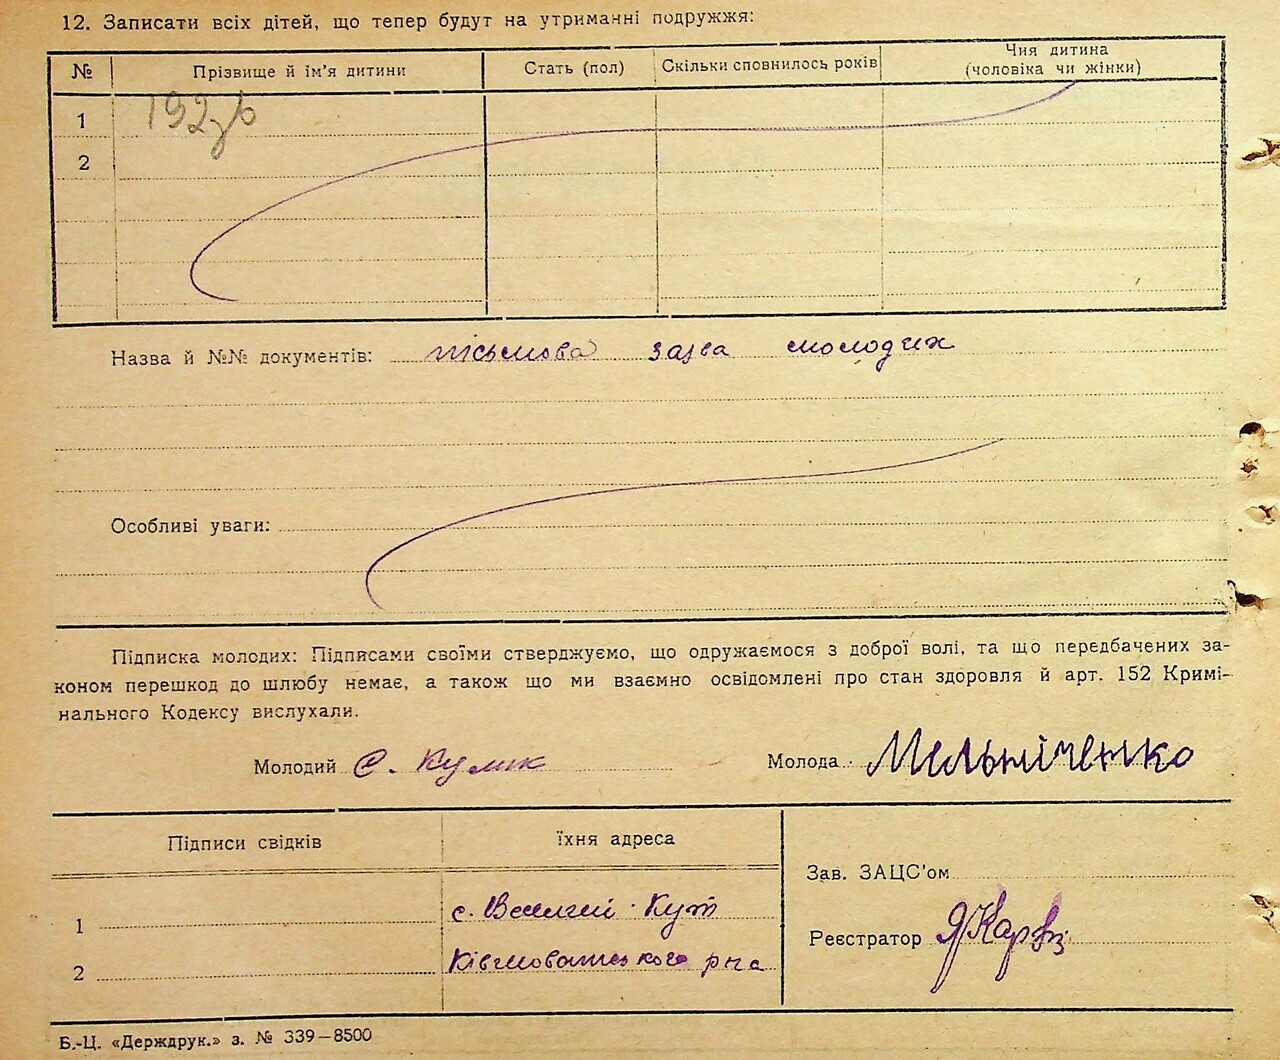 12. Записати всіх дітей, що тепер будут на утриманні подружжя:
№ Прізвище й ім'я дитини Стать (пол) Скільки сповнилось років Чия дитина (чоловіка чи жінки)
1
2
Назва й №№ документів: письмова заява молодих
Особливі уваги:
Підписка молодих: Підписами своїми стверджуємо, що одружаємося з доброї волі, та що передбачених за-
коном перешкод до шлюбу немає, а також що ми взаємно освідомлені про стан здоровля й арт. 152 Кримі-
нального Кодексу вислухали.
Молодий Є. Кулик Молода Мельніченко
Підписи свідків їхня адреса
Зав. ЗАЦС'ом
1 с. Великий Кут
Реєстратор
2
Б.-Ц. «Держдрук.» з. № 339—8500